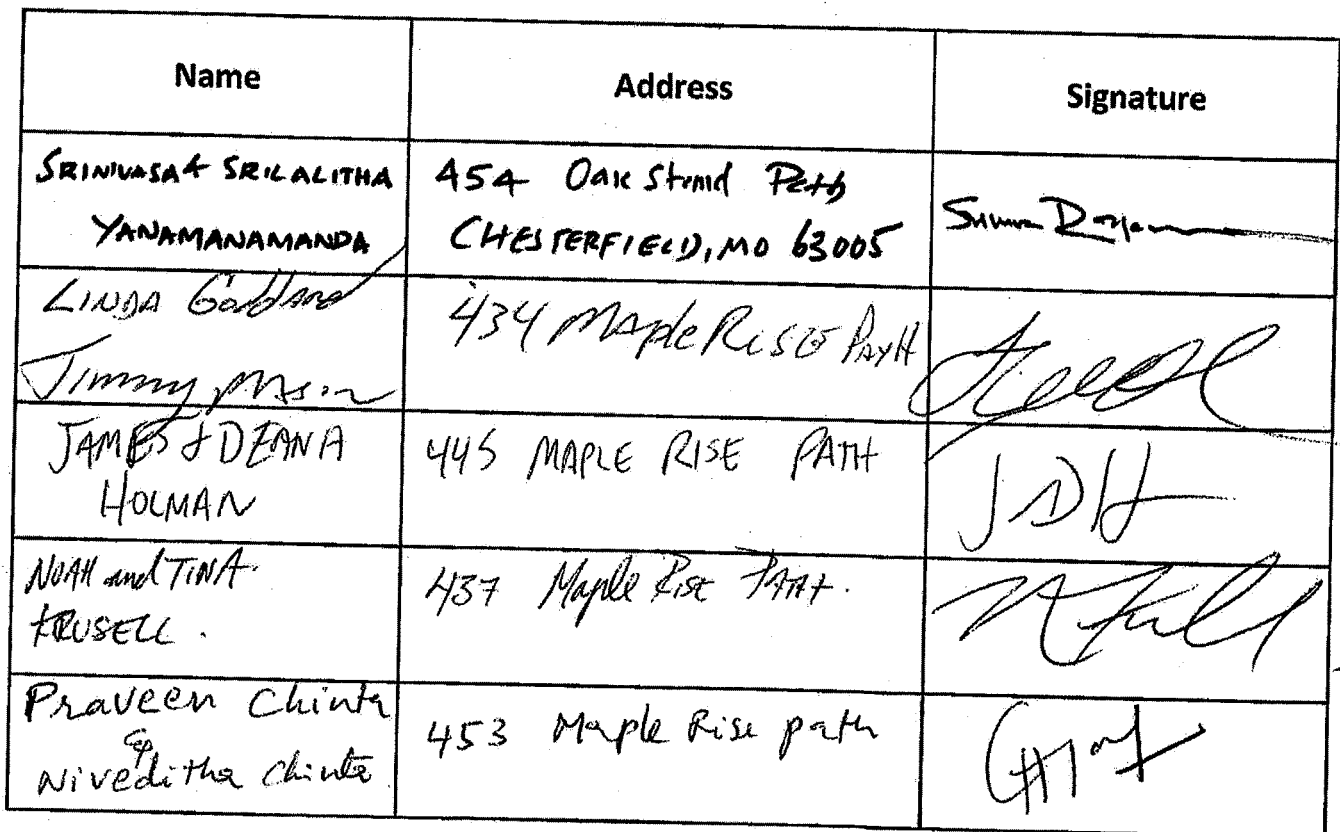 Name Address Signature
SRINIVASA & SRILALITHA
YANAMANAMANDA
454 Oak Stand Path
CHESTERFIELD, MO 63005
LINDA Goddard
Jimmy
434 Maple RISE PATH
JAMES & DEANA
HOLMAN
445 MAPLE RISE PATH
JDH
NOAH and TINA
KRUSELL.
437 Maple Rise PATH.
Praveen Chinta
&
Niveditha Chinta
453 Maple Rise path